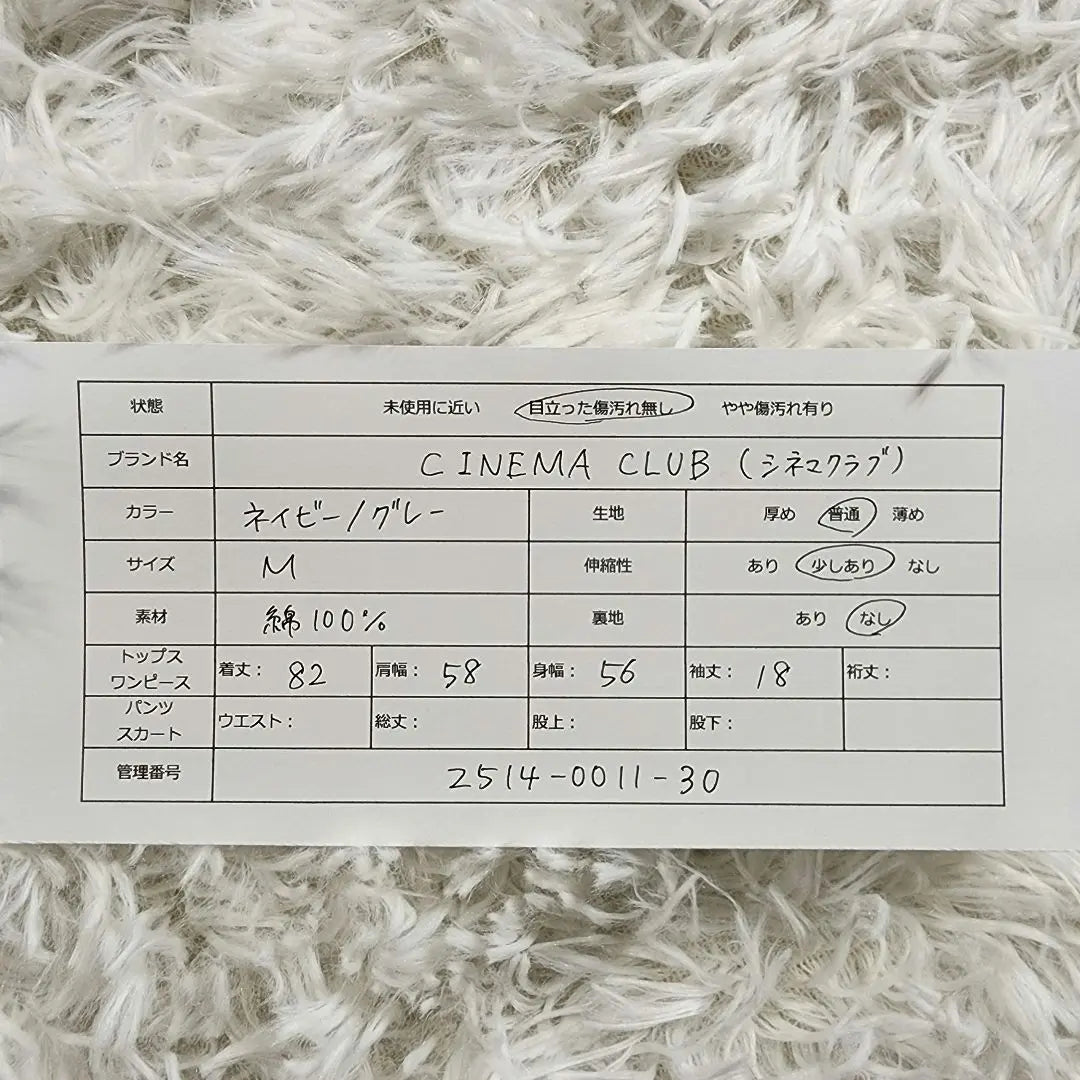 状態 未使用に近い 目立った傷汚れ無し やや傷汚れ有り
ブランド名 CINEMA CLUB (シネマクラブ)
カラー ネイビー/グレー 生地 厚め 普通 薄め
サイズ M 伸縮性 あり 少しあり なし
素材 綿100% 裏地 あり なし
トップス
ワンピース 着丈： 82 肩幅： 58 身幅： 56 袖丈： 18 裄丈：
パンツ
スカート ウエスト： 総丈： 股上： 股下：
管理番号 2514-0011-30